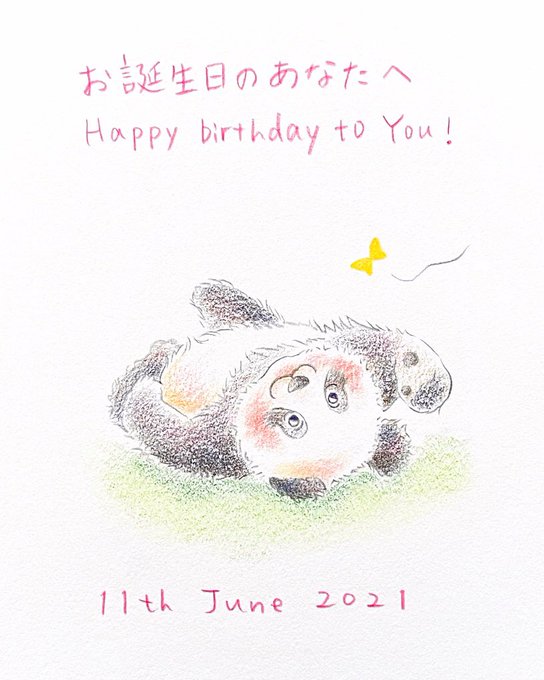 お誕生日のあなたへ
Happy birthday to You!
11th June 2021